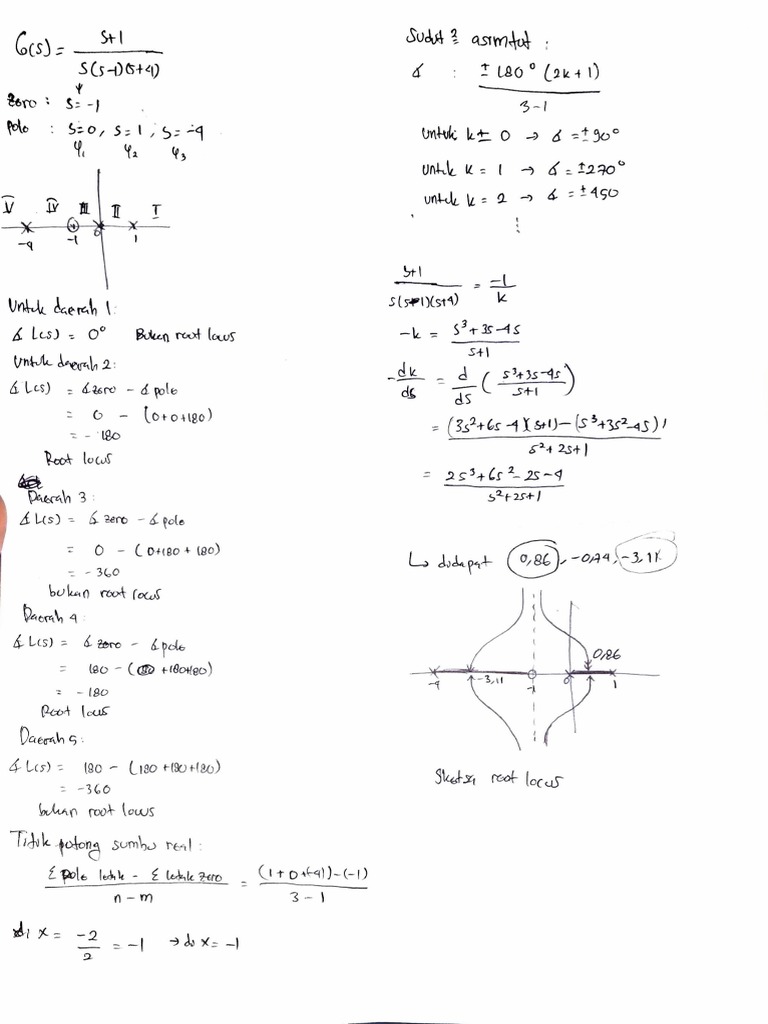 G(s) = (s+1) / (s(s-1)(s+4))
Zero : s = -1
Pole : s=0, s=1, s=-4
φ₁ φ₂ φ₃
V IV III II I
-4 -1 0 1
Untuk daerah 1:
∡ L(s) = 0° Bukan root locus
Untuk daerah 2:
∡ L(s) = ∡ zero - ∡ pole
= 0 - (0+0+180)
= -180
Root locus
Daerah 3:
∡ L(s) = ∡ zero - ∡ pole
= 0 - (0+180+180)
= -360
bukan root locus
Daerah 4:
∡ L(s) = ∡ zero - ∡ pole
= 180 - ( +180+180)
= -180
Root locus
Daerah 5:
∡ L(s) = 180 - (180+180+180)
= -360
bukan root locus
Titik potong sumbu real:
(Σ Pole letak - Σ letak zero) / (n-m) = ((1+0+(-4))-(-1)) / (3-1)
di x = -2/2 = -1 → di x = -1
Sudut² asimtot :
∡ : ±180° (2k+1) / (3-1)
Untuk k± 0 → ∡ = ±90°
untuk k = 1 → ∡ = ±270°
untuk k = 2 → ∡ = ±450
⋮
(s+1) / (s(s-1)(s+4)) = -1/k
-k = (s³+3s-4s) / (s+1)
-dk/ds = d/ds ( (s³+3s-4s) / (s+1) )
= ((3s²+6s-4)(s+1)-(s³+3s²-4s)1) / (s²+2s+1)
= (2s³+6s²-2s-4) / (s²+2s+1)
↳ didapat 0,86, -0,74, -3,11
0,86
-4 -3,11 -1 0 1
Sketsa root locus